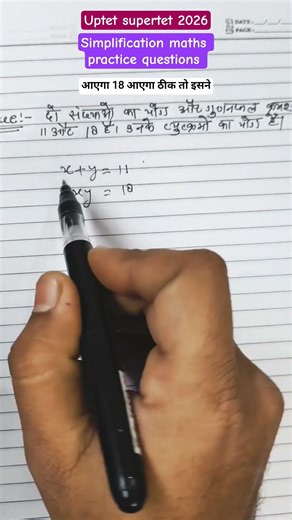 Uptet supertet 2026
Simplification maths
practice questions
DATE
PAGE
आएगा 18 आएगा ठीक तो इसने
:- दो संख्याओं का योग और गुणनफल क्रमशः
11 और 18 है। उनके व्युत्क्रमों का योग है।
x+y = 11
xy = 18